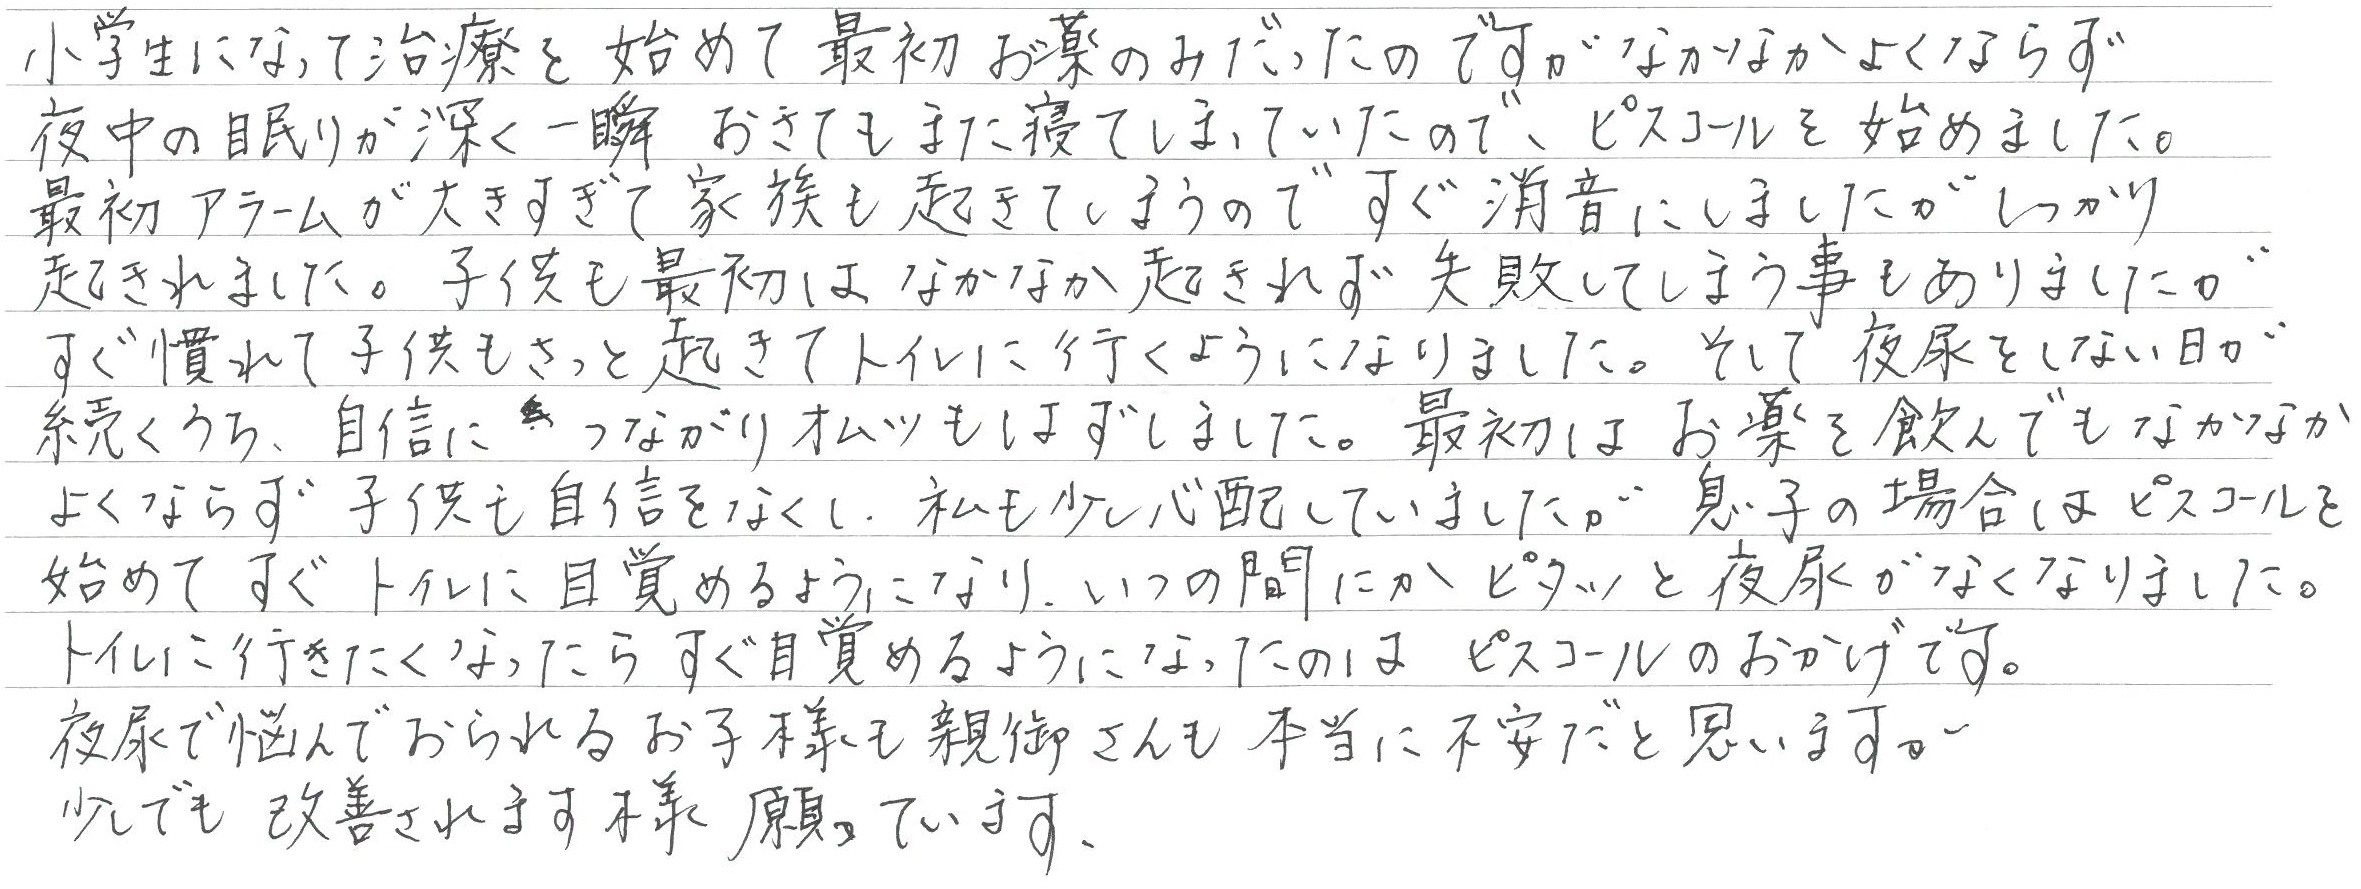 小学生になって治療を始めて最初お薬のみだったのですがなかなかよくならず
夜中の眠りが深く一瞬おきてもまた寝てしまっていたので、ピスコールを始めました。
最初アラームが大きすぎて家族も起きてしまうのですぐ消音にしましたがしっかり
起きれました。子供も最初はなかなか起きれず失敗してしまう事もありましたが
すぐ慣れて子供もさっと起きてトイレに行くようになりました。そして夜尿をしない日が
続くうち、自信につながりオムツもはずしました。最初はお薬を飲んでもなかなか
よくならず子供も自信をなくし、私も少し心配していましたが息子の場合はピスコールを
始めてすぐトイレに目覚めるようになり、いつの間にかピタッと夜尿がなくなりました。
トイレに行きたくなったらすぐ目覚めるようになったのはピスコールのおかげです。
夜尿で悩んでおられるお子様も親御さんも本当に不安だと思いますが
少しでも改善されます様願っています、